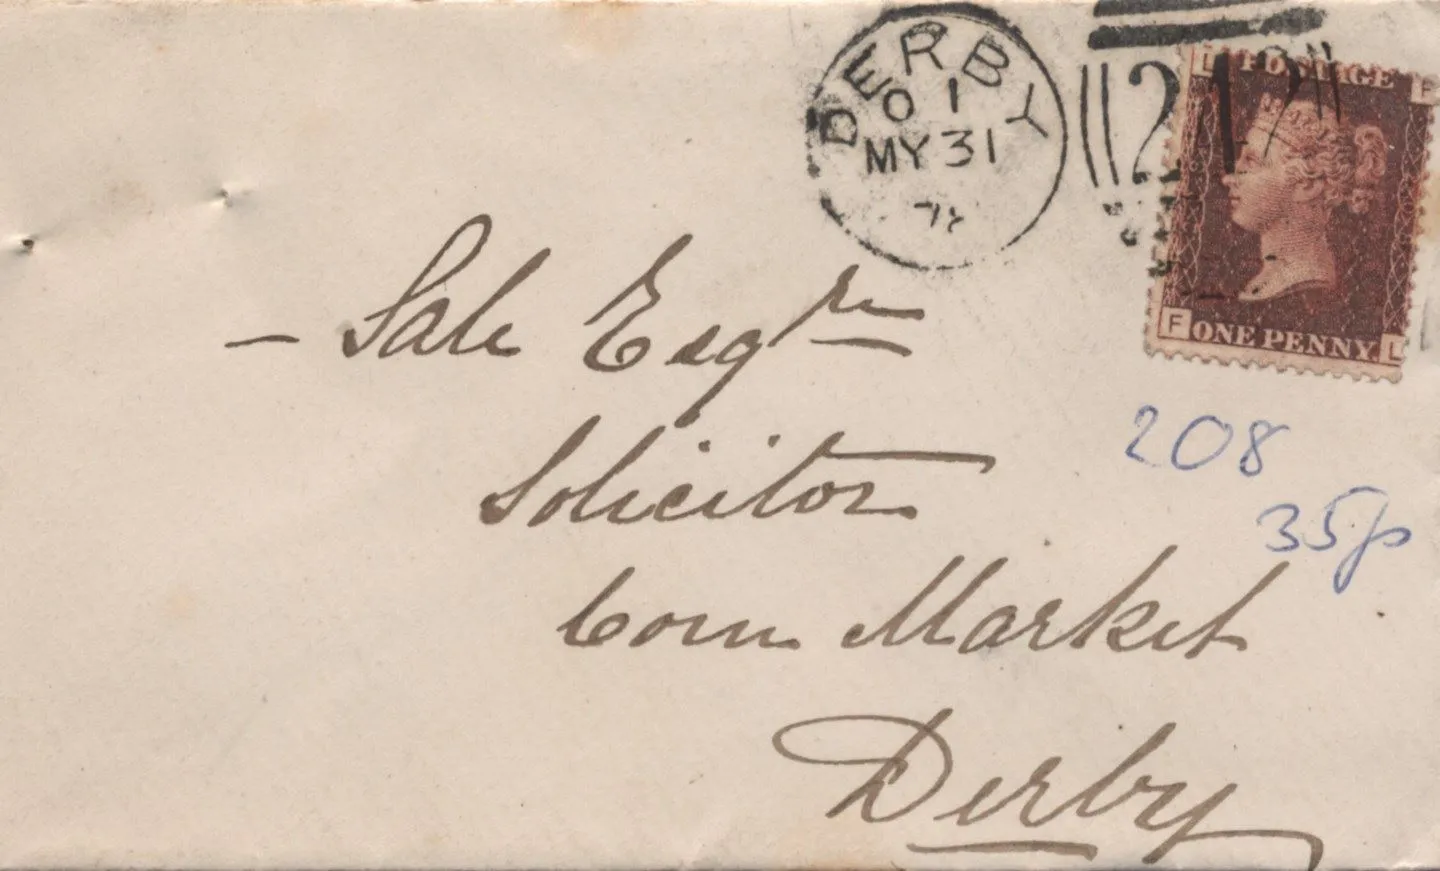 DERBY
O 1
MY 31
78
217
L POSTAGE F
F ONE PENNY. L
— Sale Esqre
Solicitor
Corn Market
Derby
208
35p